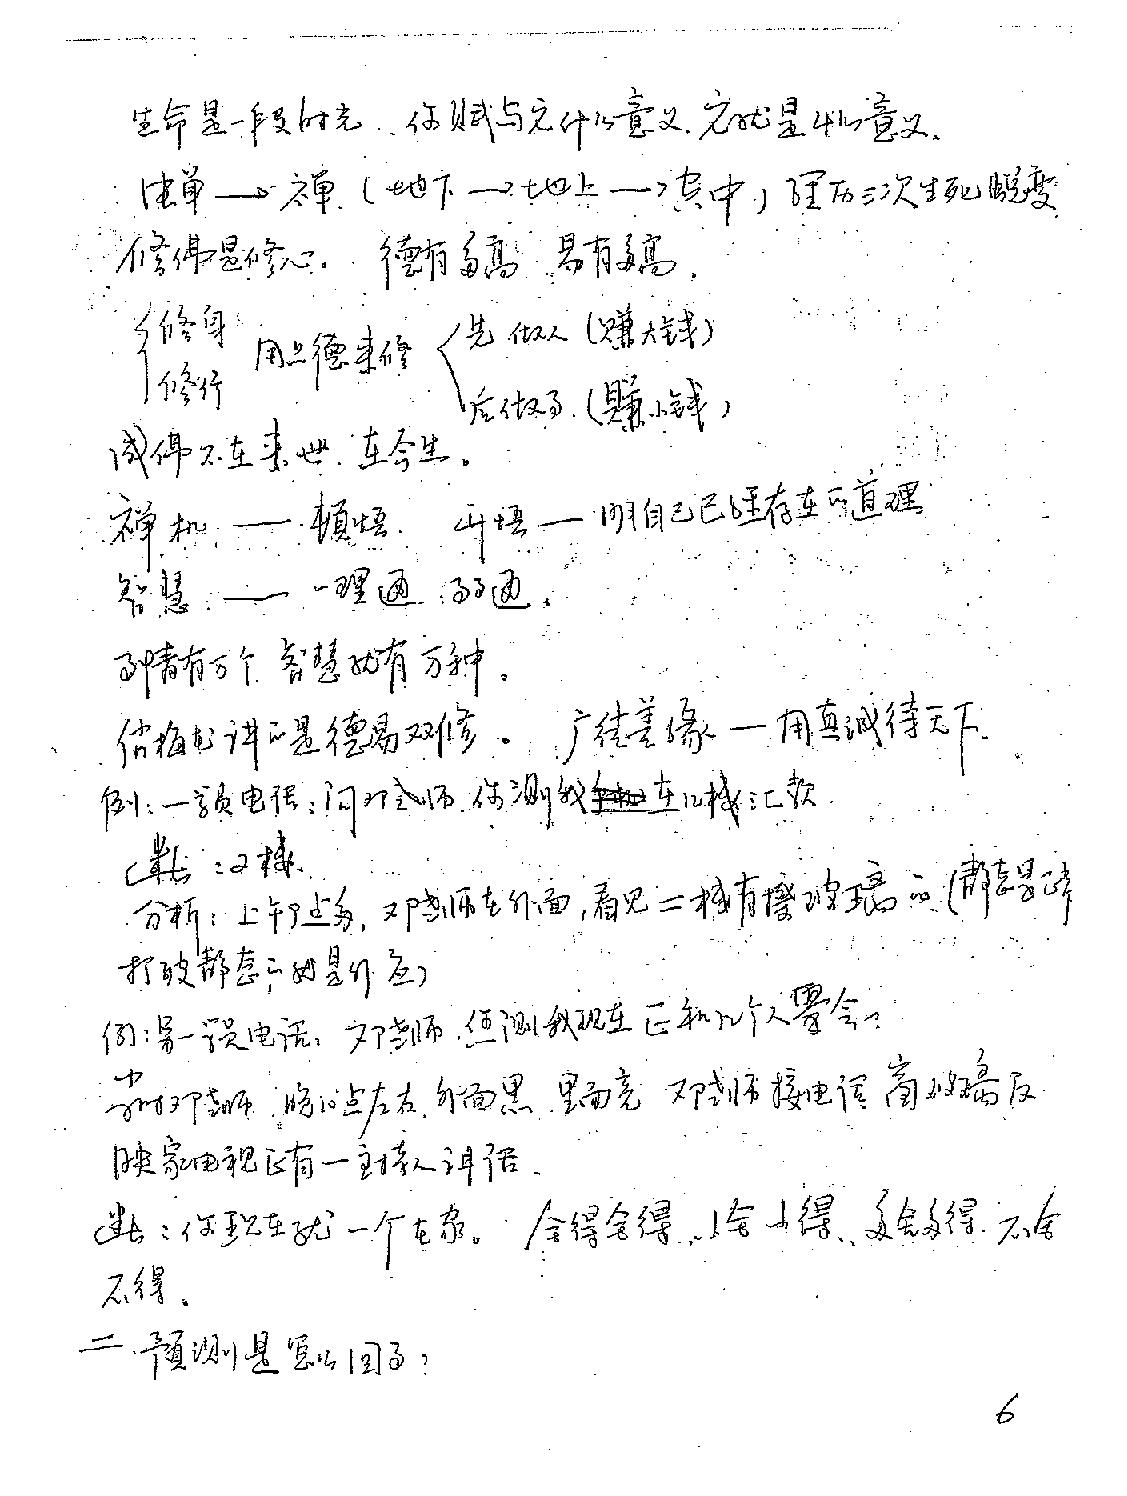 生命是一段时光、你赋与它什么意义、它就是什么意义、
蝉 → 禅、(地下 → 地上 → 空中) 经历三次生死蜕变
修佛是修心。 德有多高 易有多高、
修身
修行
用上德来修
先做人 (赚大钱)
后做事、(赚小钱)
成佛不在来世、在今生。
禅机 — 顿悟、 开悟 — 明自己已经存在的道理
智慧 — 一理通 事事通。
事情有万个 智慧就有万种。
讲的是德易双修。 广结善缘 — 用真诚待天下
例: 一学员电话: 问邓老师、你测我在几楼汇款
断: 2楼、
分析: 上午9点多, 邓老师在外面, 看见二楼有擦玻璃的、(静态是
打破静态的就是外应)
例: 另一学员电话: 邓老师、您测我现在正和几个人聚会?
当时邓老师、晚10点左右、外面黑、里面亮 邓老师接电话 窗玻璃反
映家电视正有一主持人讲话、
断: 你现在就一个在家。 舍得舍得、小舍小得、多舍多得、不舍
不得。
二、预测是怎么回事:
6